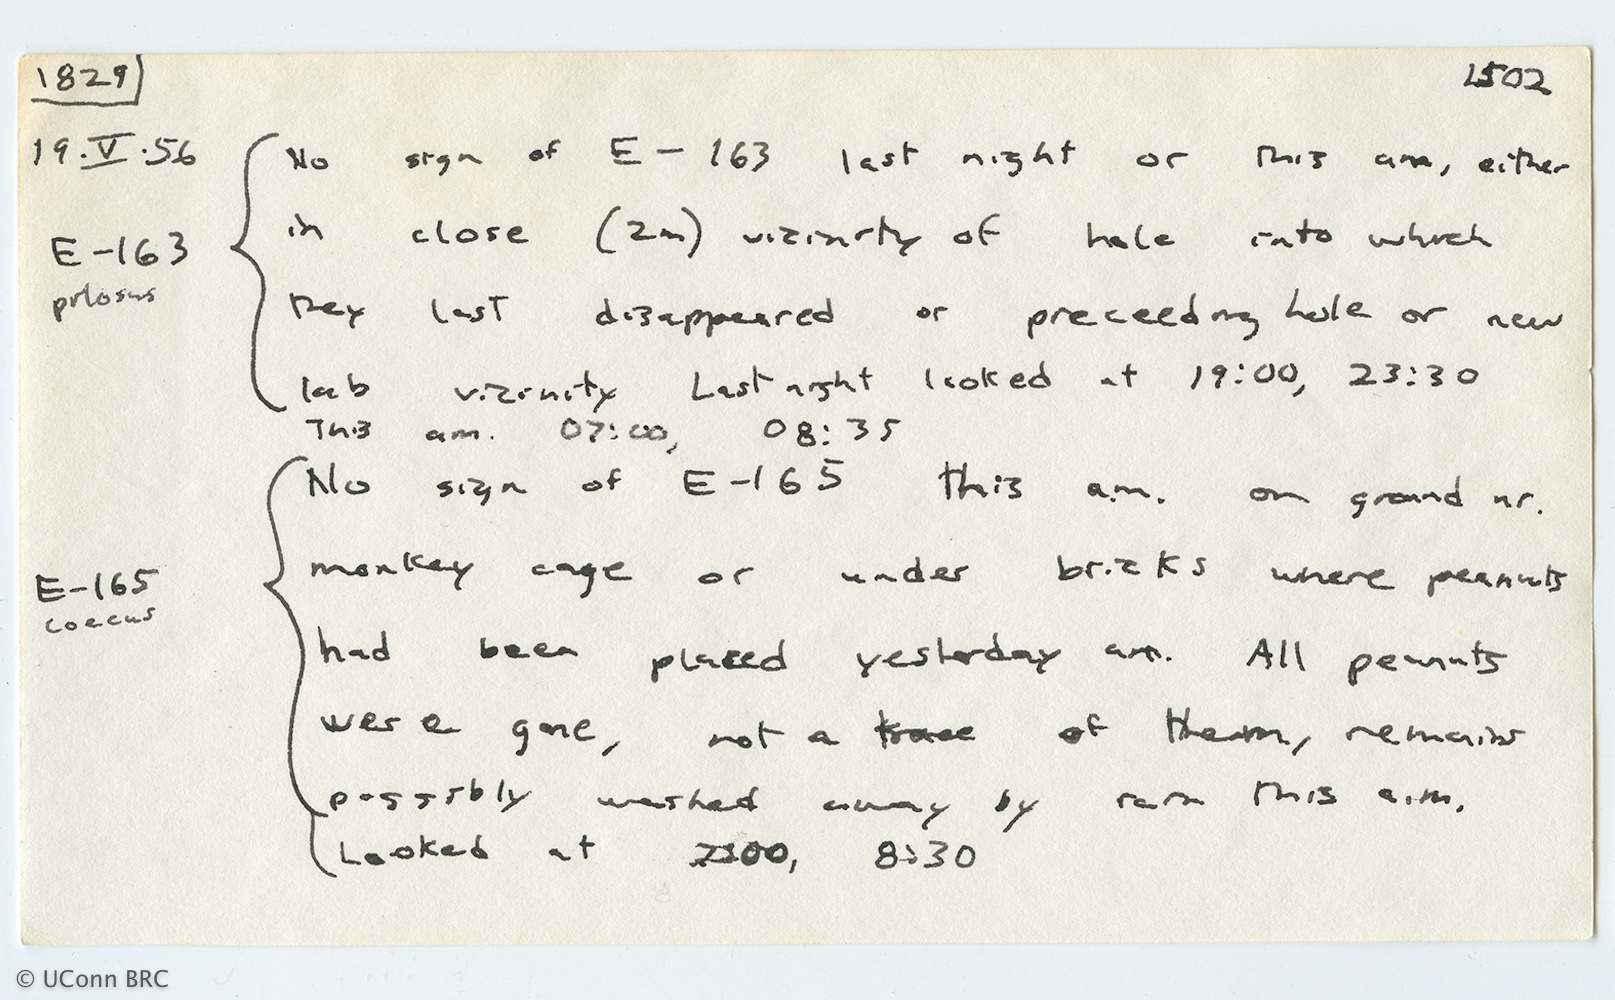 1829
1502
19.V.56
E-163
pilosus
No sign of E-163 last night or this am, either
in close (2m) vizinity of hole into which
they last disappeared or preceeding hole or new
lab vizinity Last night looked at 19:00, 23:30
This am. 07:00, 08:35
E-165
coecus
No sign of E-165 this a.m. on ground nr.
monkey cage or under bricks where peanuts
had been placed yesterday am. All peanuts
were gone, not a trace of them, remains
possibly washed away by rain this a.m.
Looked at 7:00, 8:30
© UConn BRC